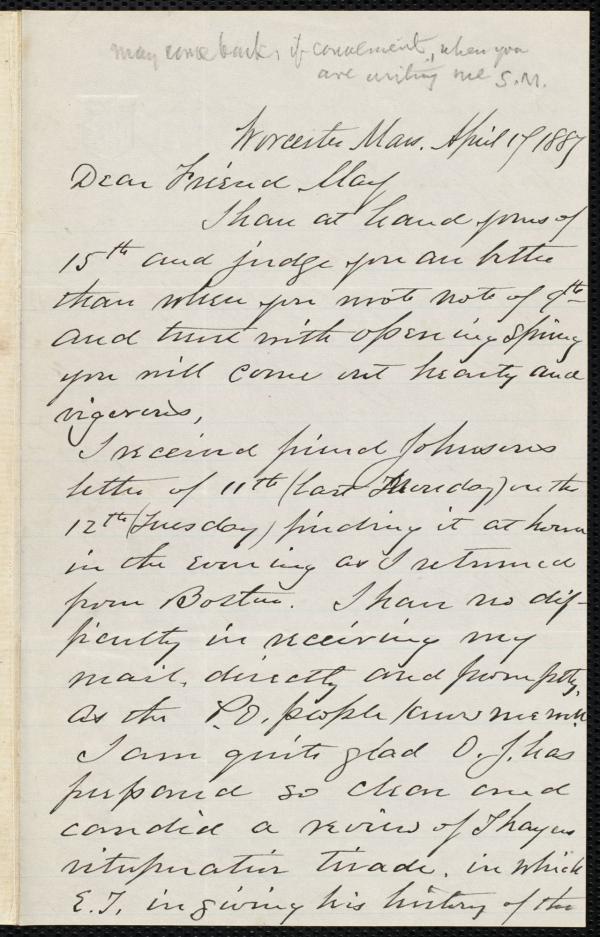 may come back, if convenient, when you
are writing me S.M.
Worcester Mass. April 17 1887
Dear Friend May
I have at hand yours of
15th and judge you are better
than when you wrote note of 9th
and trust with opening Spring
you will come out hearty and
vigorous,
I received friend Johnsons
letter of 11th (last Monday) on the
12th (Tuesday) finding it at home
in the evening as I returned
from Boston. I have no dif-
ficulty in receiving my
mail, directly and promptly,
as the P.O. people know me well
I am quite glad O.J. has
prepared so clear and
candid a review of Thayers
vituperative tirade, in which
E.T. in giving his history of the